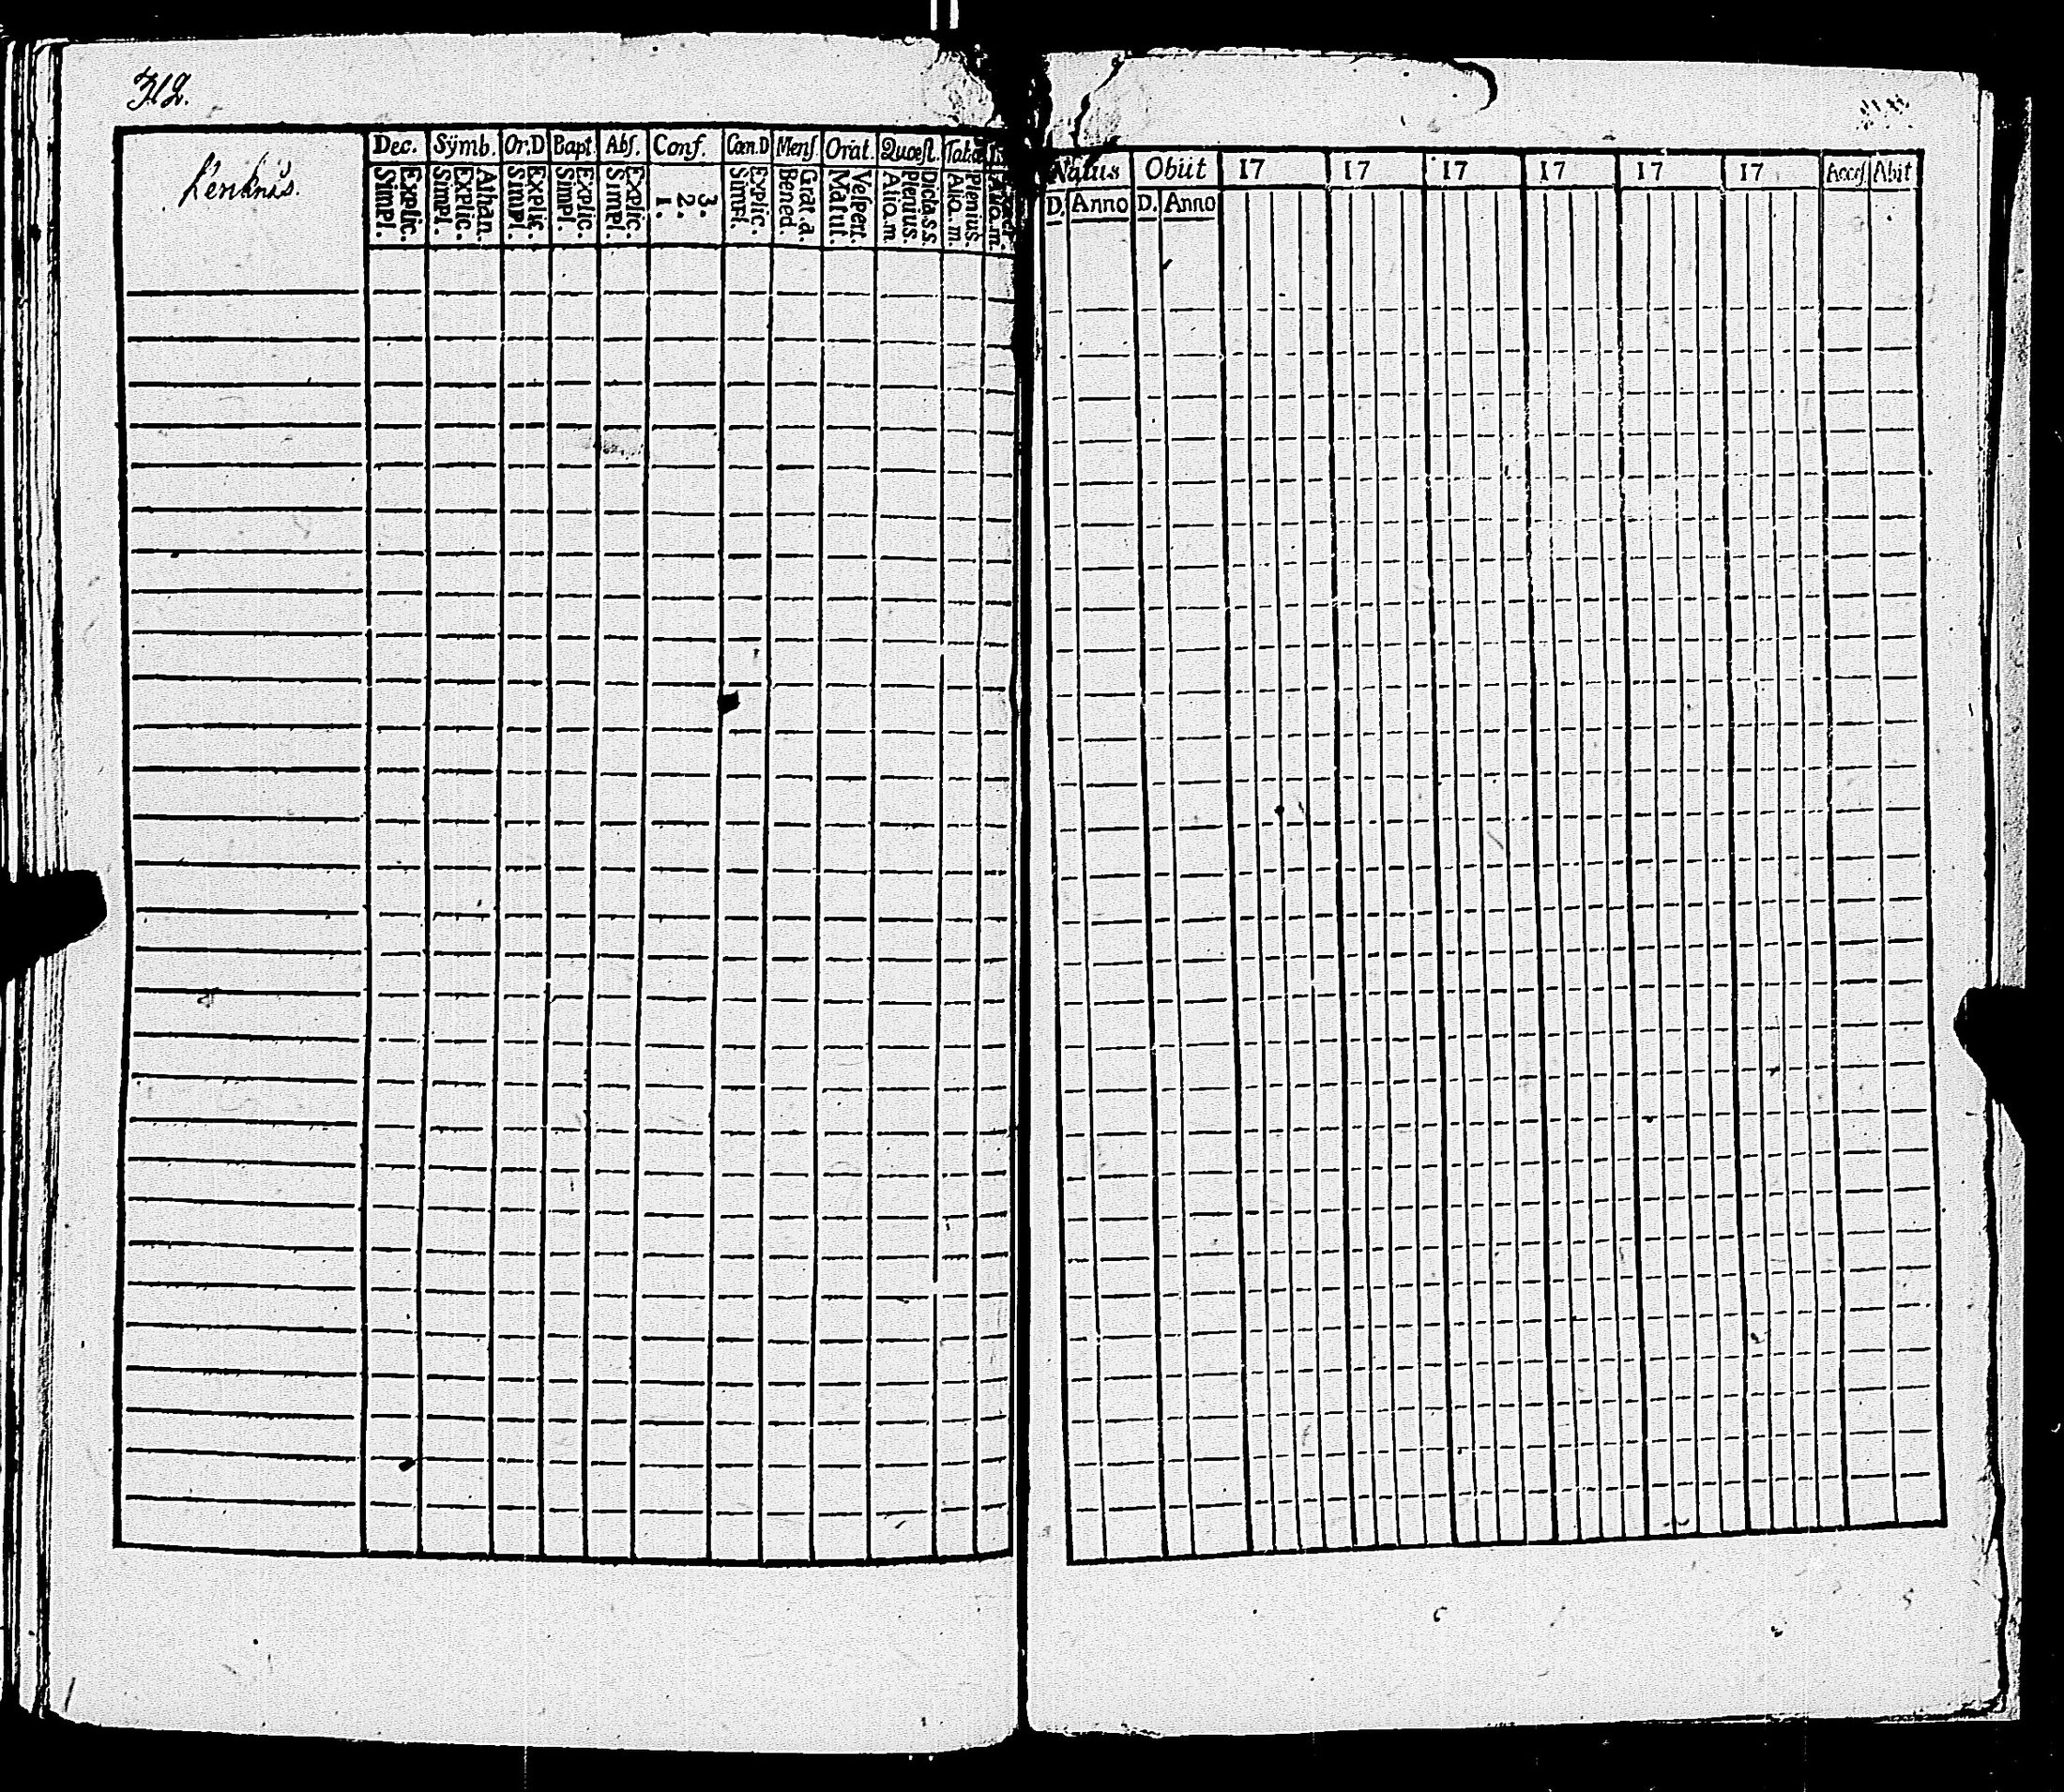 312.
Dec. Sÿmb. Or.D Bapt. Abſ. Conf. Cœn.D Menſ. Orat. Quœſt.
Explic. Simpl. Athan. Explic. Simpl. Explic. Simpl. Explic. Simpl. Explic. Simpl. 3. 2. 1. Explic. Simpl. Grat. a. Bened. Veſpert. Matut. Dicta.s.s. Plenius. Alia.m. Plenius. Alia.m.
Natus Obiit 17 17 17 17 17 17 Acceſ. Abit
D. Anno D. Anno